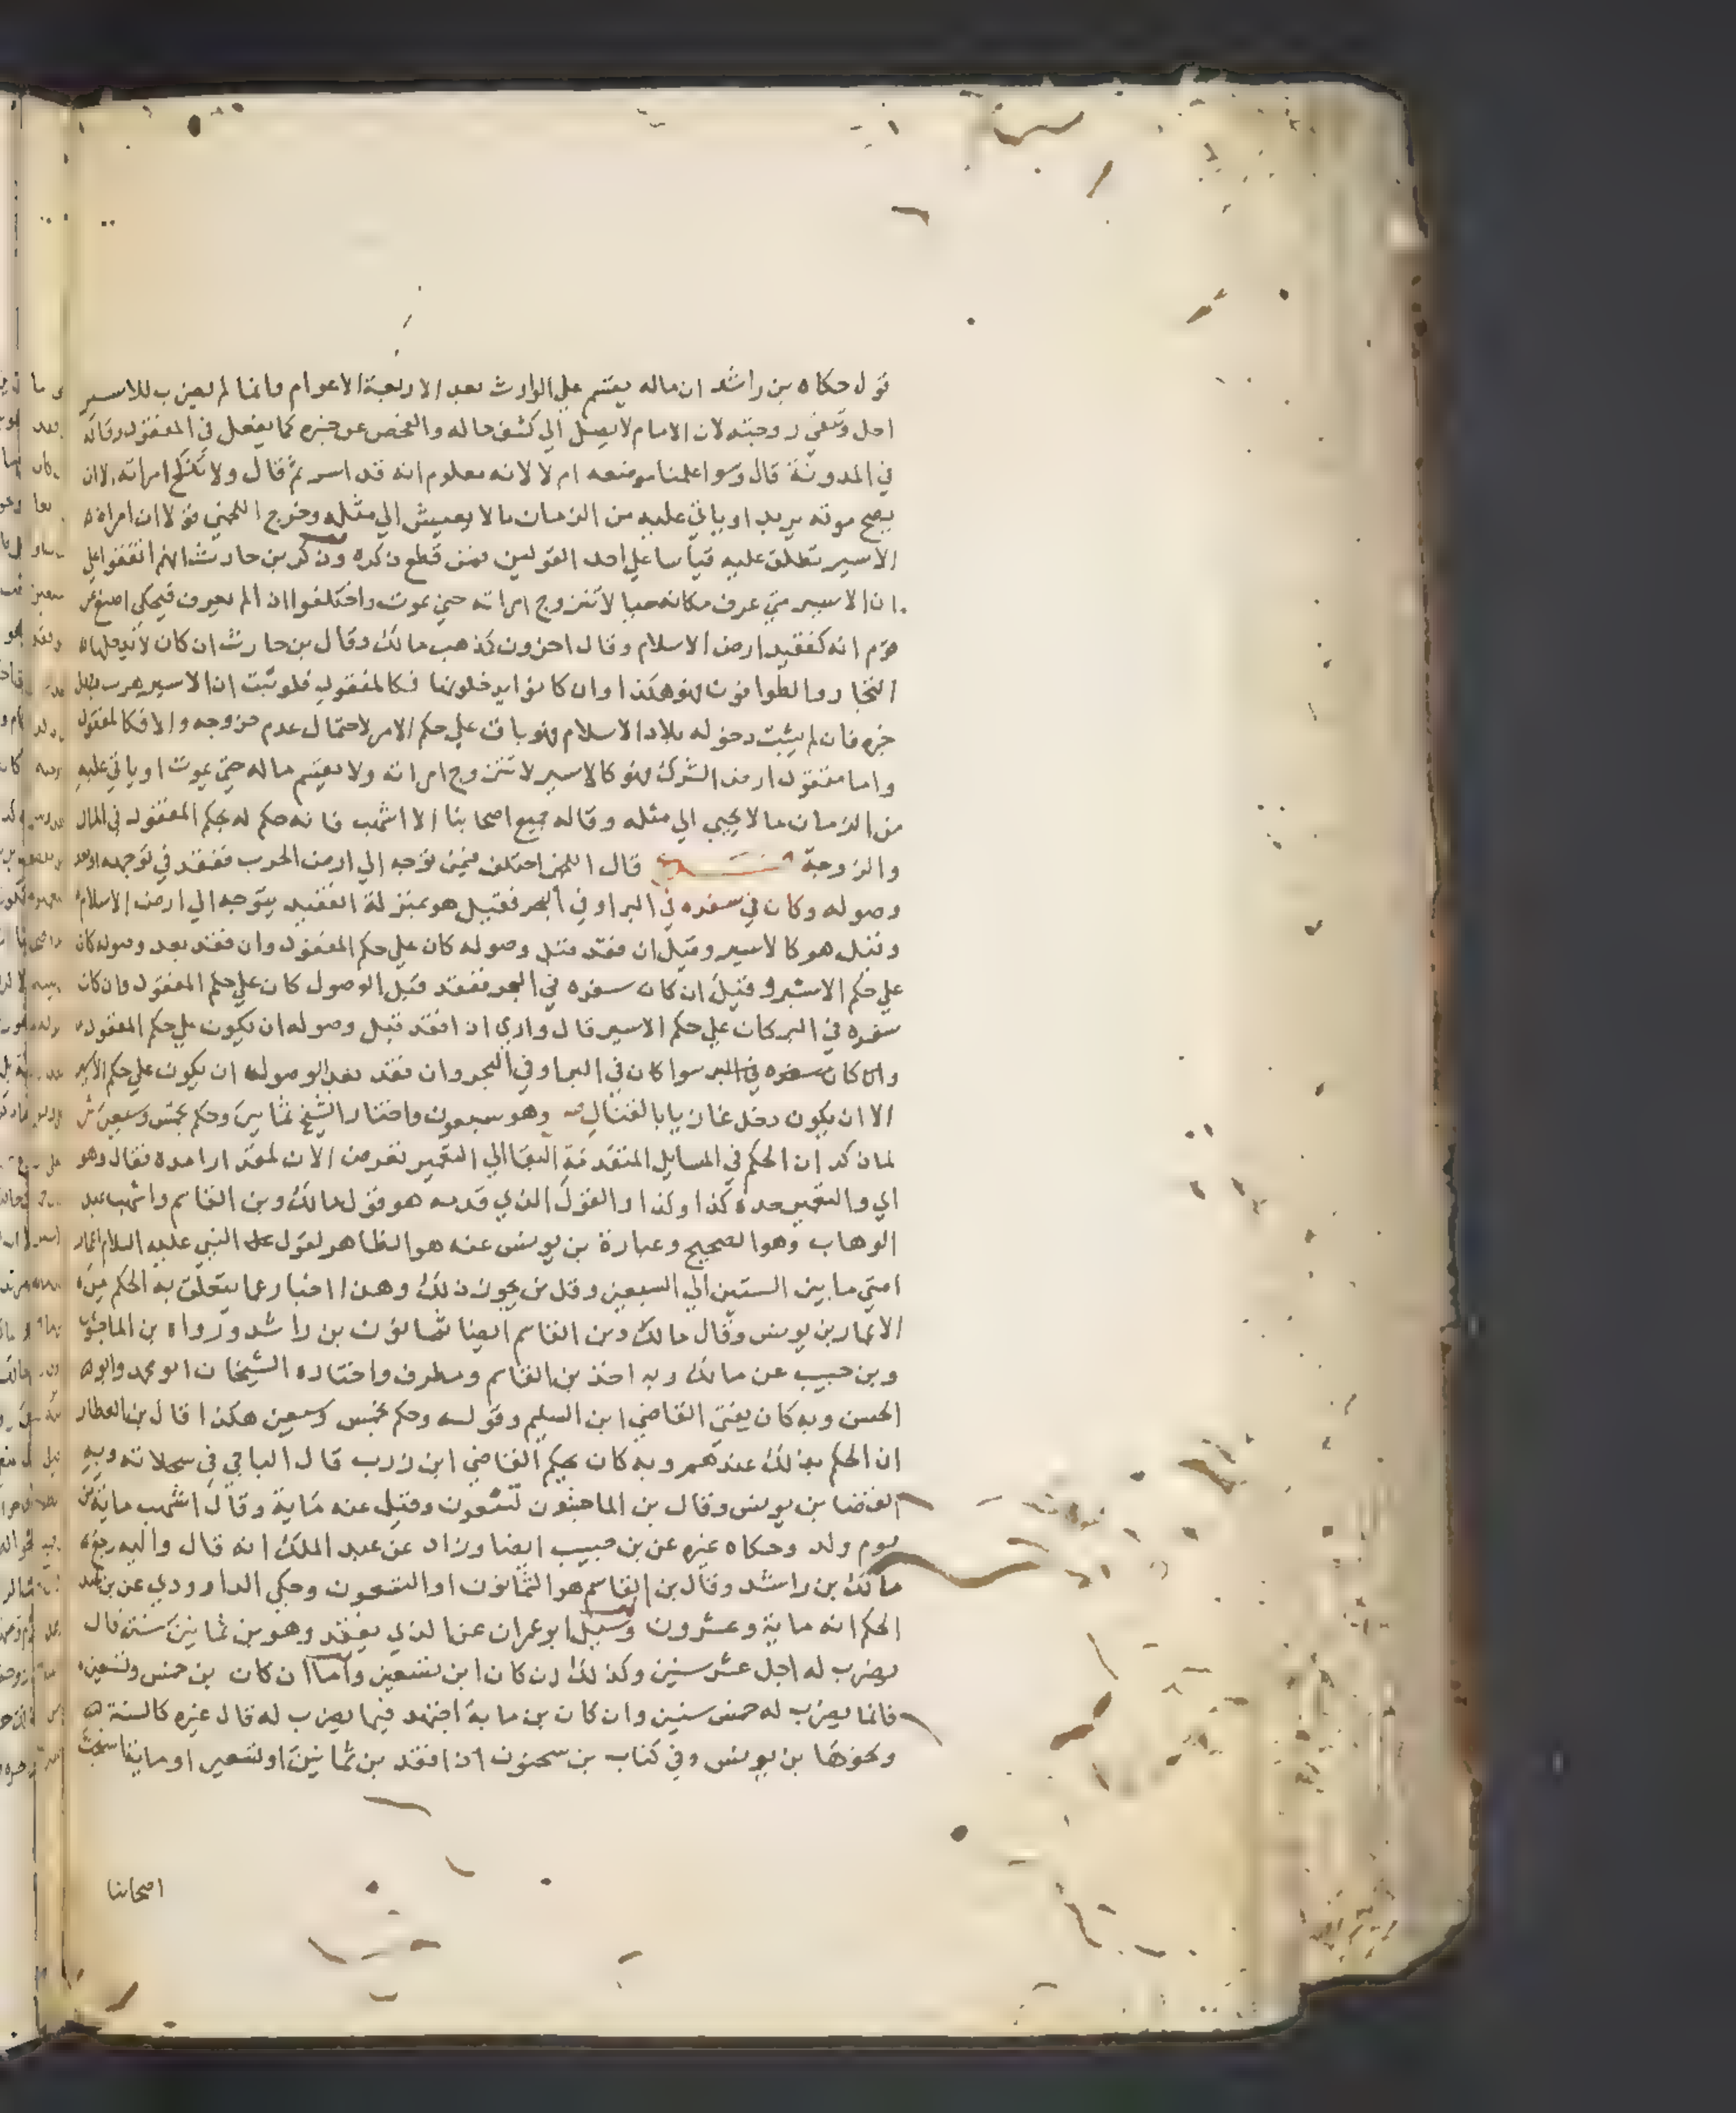 قول حكاه بن راشد ان ماله يقسم علي الوارث بعد الاربعة الاعوام وانما لم يضرب للاسير
اجل وتبقي زوجته لان الامام لا يصل الي كشف حاله والفحص عن خبره كما يفعل في المفقود وقاله
في المدونة قال وسوا علمنا موضعه ام لا لانه معلوم انه قد اسر ثم قال ولا تنكح امراته الا ان
يصح موته يريد او ياتي عليه من الزمان ما لا يعيش الي مثله وخرج اللخمي قولا ان امراة
الاسير تطلق عليه قياسا علي احد القولين فمن قطع ذكره وذكر بن حارث انهم اتفقوا علي
ان الاسير متي عرف مكانه حيا لا تتزوج امراته حتي يموت واختلفوا اذا لم يعرف فيحكي اصبغ عن
قوم انه كفقيد ارض الاسلام وقال اخرون كذهب مالك وقال بن حارث ان كان لا يدخلها
التجار والطوافون فهو هكذا وان كانوا يدخلونها فكالمفقود فلو ثبت ان الاسير هرب فجهل
خبره فان لم يثبت دخوله بلاد الاسلام فهو باق علي حكم الامر لاحتمال عدم خروجه والا فكالمفقود
واما مفقود ارض الشرك فهو كالاسير لا تتزوج امراته ولا يقسم ماله حتي يموت او ياتي عليه
من الزمان ما لا يحيي الي مثله وقاله جميع اصحابنا الا اشهب فانه حكم له بحكم المفقود في المال
والزوجة قال اللخمي اختلف فيمن توجه الي ارض الحرب ففقد في توجهه او بعد
وصوله وكان في سفره في البر او في البحر فقيل هو بمنزلة الفقيد يتوجه الي ارض الاسلام
وقيل هو كالاسير وقيل ان فقد قبل وصوله كان علي حكم المفقود وان فقد بعد وصوله كان
علي حكم الاسير وقيل ان كان سفره في البحر ففقد قبل الوصول كان علي حكم المفقود وان كان
سفره في البر كان علي حكم الاسير قال واري اذا فقد قبل وصوله ان يكون علي حكم المفقود
وان كان سفره في البر سوا كان في البر او في البحر وان فقد بعد الوصول ان يكون علي حكم الاسير
الا ان يكون دخل غازيا بالقتال وهو سبعون واختار الشيخ ثمانين وحكم بخمس وسبعين ش
لما ذكر ان الحكم في المسايل المتقدمة البقا الي التعمير تعرض الان لمقدار امده فقال وهو
اي والتعمير مدة كذا وكذا والقول الذي قدمه هو قول مالك وبن القاسم واشهب عبد
الوهاب وهو الصحيح وعبارة بن يونس عنه هو الظاهر لقول النبي عليه السلام اعمار
امتي ما بين الستين الي السبعين وقل من يجوز ذلك وهذا اخبار عما يتعلق به الحكم من
الاعمار بن يونس وقال مالك وبن القاسم ايضا ثمانون بن راشد ورواه بن الماجشون
وبن حبيب عن مالك وبه اخذ بن القاسم ومطرف واختاره الشيخان ابو محمد وابو
الحسن وبه كان يفتي القاضي ابن السليم وقوله وحكم بخمس وسبعين هكذا قال بن العطار
ان الحكم بذلك عندهم وبه كان يحكم القاضي ابن زرب قال الباجي في سجلاته وبه
القضا بن يونس وقال بن الماجشون تسعون وقيل عنه ماية وقال اشهب ماية من
يوم ولد وحكاه غيره عن بن حبيب ايضا وزاد عن عبد الملك انه قال واليه رجع
مالك بن راشد وقال بن القاسم هو الثمانون او التسعون وحكي الداوودي عن بن عبد
الحكم انه ماية وعشرون وسيل ابو عمران عن الذي يفقد وهو بن ثمانين سنة قال
يضرب له اجل عشر سنين وكذلك ان كان ابن تسعين واما ان كان بن خمس وتسعين
فانما يضرب له خمس سنين وان كان بن ماية اجتهد فيما يضرب له قال غيره كالسنة
ونحوها بن يونس وفي كتاب بن سحنون اذا فقد بن ثمانين او تسعين او ماية
اصحابنا